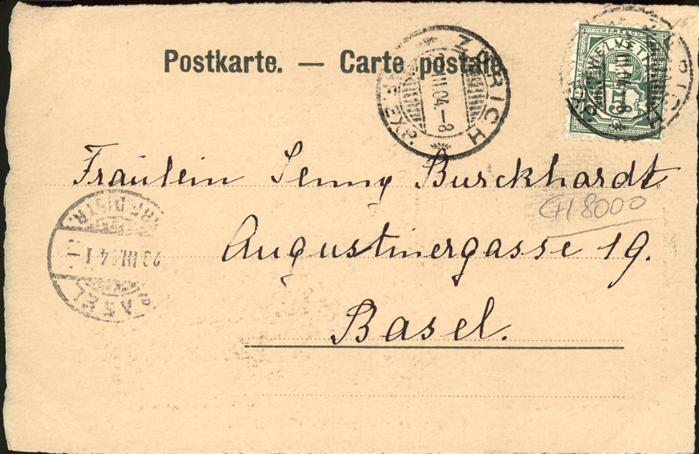 Postkarte. — Carte postale.
ZÜRICH
III.04.–8
HELVETIA
5
Fräulein Jenny Burckhardt
CH 8000
Augustinergasse 19.
Basel.
BRF. DISTR.
23.III.04.
BASEL